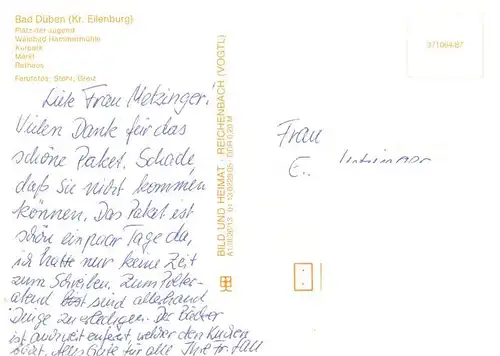 Bad Düben (Kr. Eilenburg)
Platz der Jugend
Waldbad Hammermühle
Kurpark
Markt
Rathaus
Farbfotos: Stehr, Greiz
371064/87
BILD UND HEIMAT · REICHENBACH (VOGTL)
Liebe Frau Metzinger!
Vielen Dank für das
schöne Paket. Schade,
daß Sie nicht kommen
können. Das Paket ist
schon ein paar Tage da,
ich hatte nur keine Zeit
zum Schreiben. Zum Polter-
abend sind allerhand
Dinge zu erledigen. Der Bäcker
ist entfernt, den Kuchen
Alles Gute für alle Ihre Fr.
Frau
E.